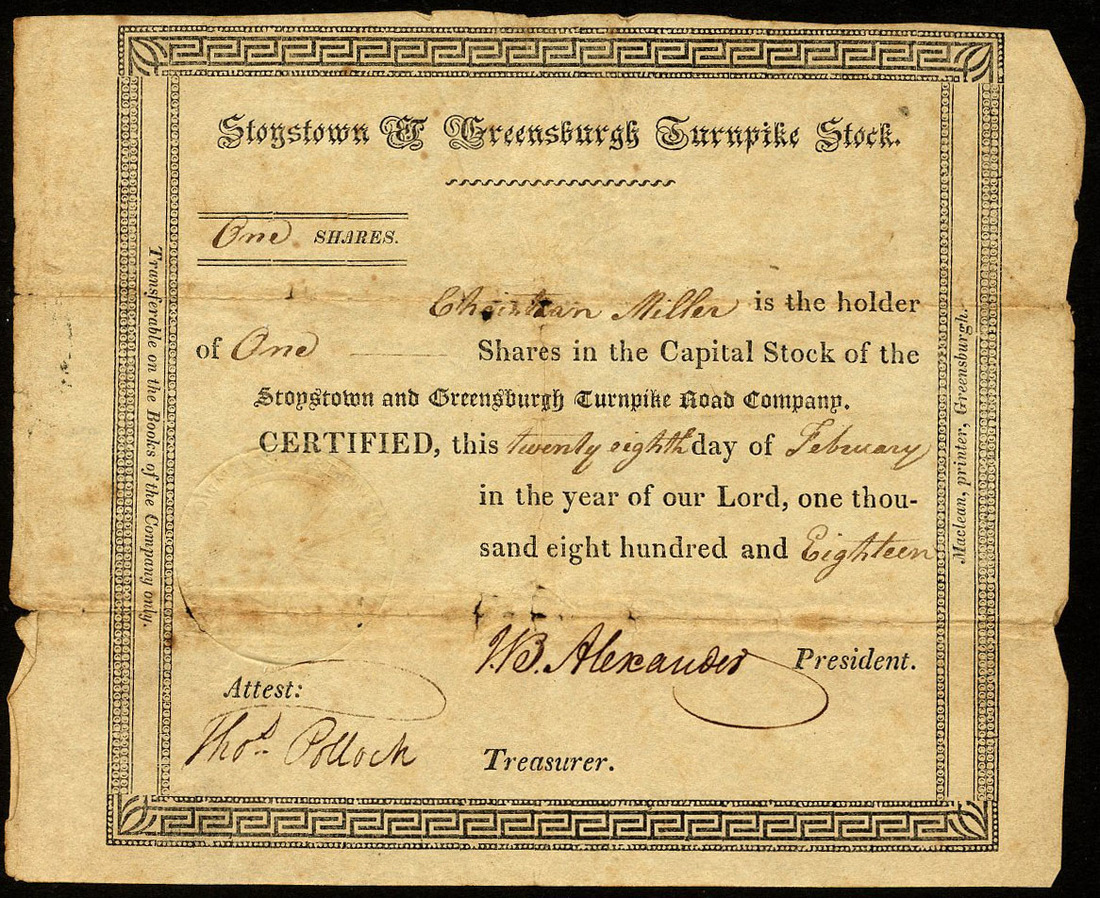 Stoystown & Greensburgh Turnpike Stock.
One SHARES.
Christian Miller is the holder
of One Shares in the Capital Stock of the
Stoystown and Greensburgh Turnpike Road Company.
CERTIFIED, this twenty eighth day of February
in the year of our Lord, one thou-
sand eight hundred and Eighteen
J.B. Alexander President.
Attest:
Thos. Pollock Treasurer.
Transferable on the Books of the Company only.
Maclean, printer, Greensburgh.